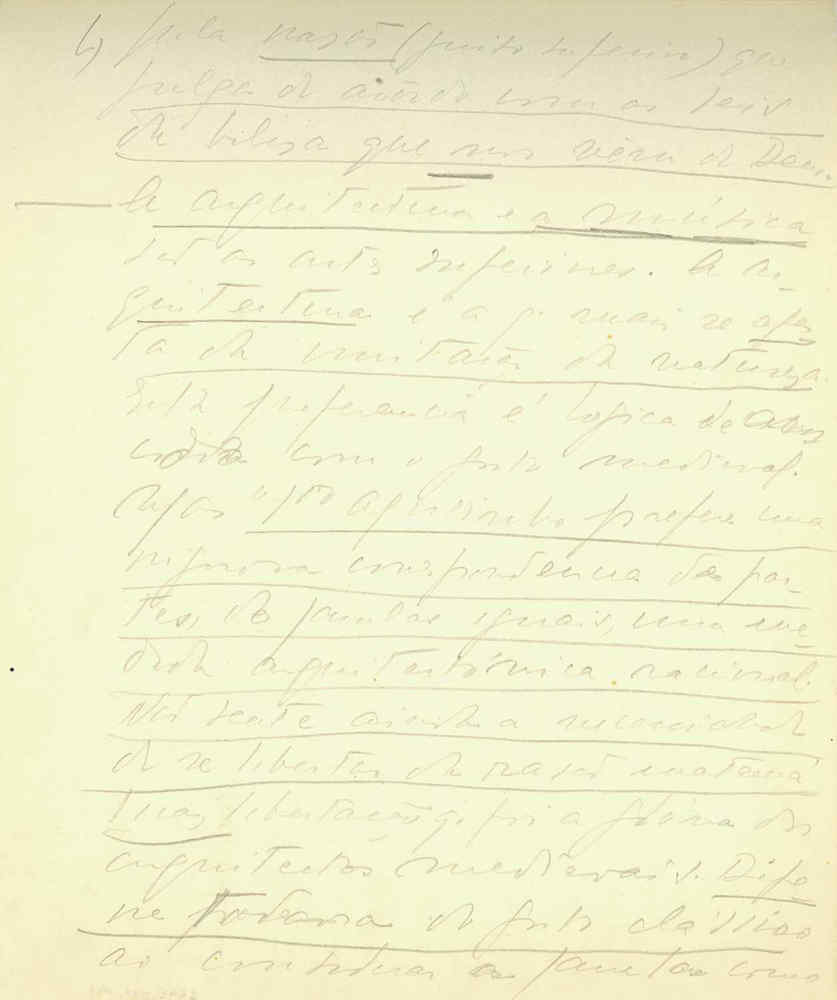 b) pela razão (juizo superior) que
julga de acôrdo com as leis
de beleza que nos vêm de Deus.
A arquitectura e a música
são as artes superiores. A ar-
quitectura é a q. mais se afas
ta da imitação da natureza.
Esta preferencia é logica de acor
do com o gosto medieval.
Mas Stº Agostinho prefere uma
rigorosa correspondencia das par-
tes, de janelas iguais, uma me-
dida arquitectónica racional.
Não sente ainda a necessidade
de se libertar da razão matema
libertação q. foi a glória dos
arquitectos medievais. Dife-
re todavia do gosto clássico
ao considerar as janelas como